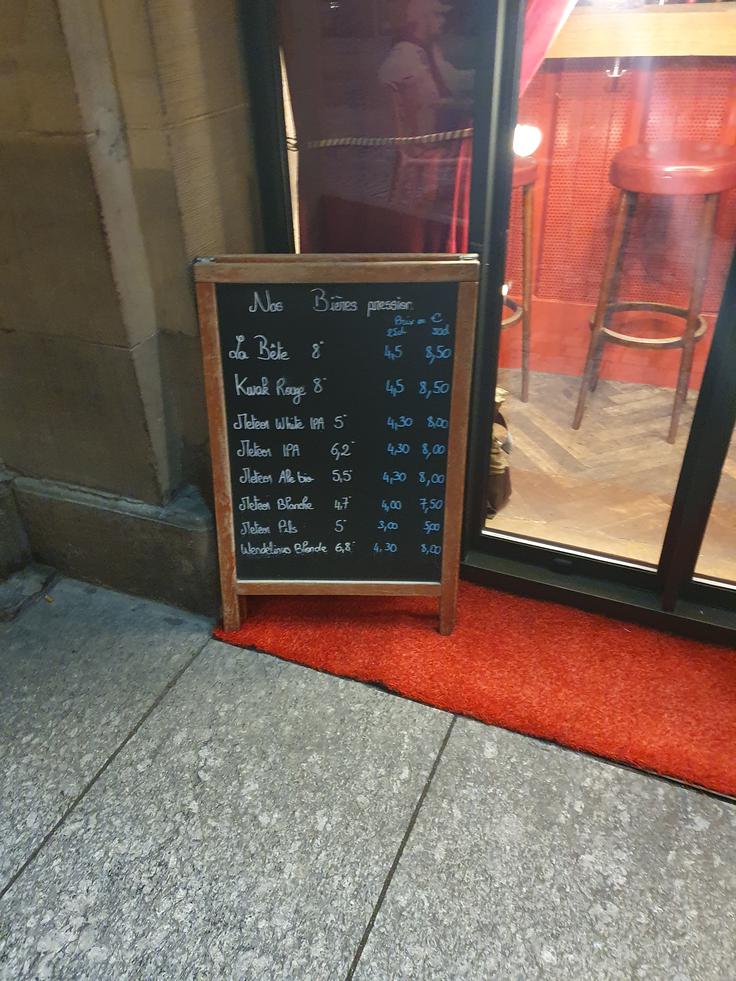 Nos Bières pression
Prix en €
25cl 50cl
La Bête 8° 4,5 8,50
Kwak Rouge 8° 4,5 8,50
Meteor White IPA 5° 4,30 8,00
Meteor IPA 6,2° 4,30 8,00
Meteor Ale bio 5,5° 4,30 8,00
Meteor Blanche 4,7° 4,00 7,50
Meteor Pils 5° 3,00 5,00
Wendelinus Blonde 6,8° 4,30 8,00